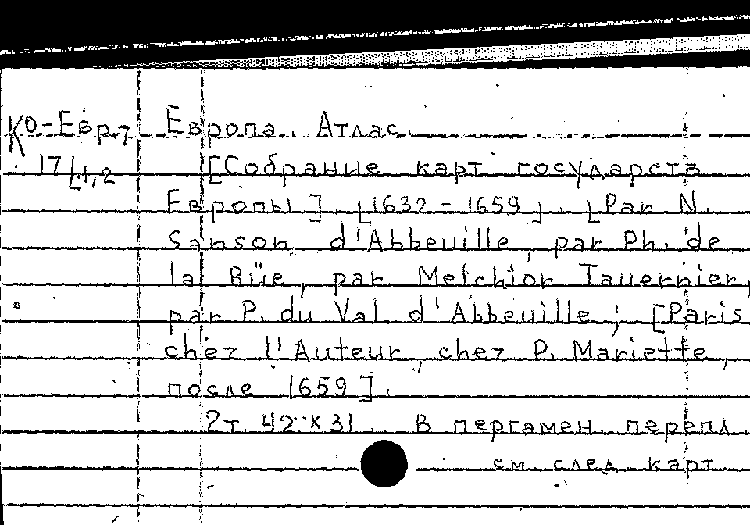 Ко-Евр. 7 Европа. Атлас.
17/1,2 [Собрание карт государств
Европы]. [1632-1659]. [Par N.
Sanson d'Abbeuille, par Ph. de
la Rüe, par Melchior Tauernier,
par P. du Val d'Abbeuille; [Paris
chez l'Auteur, chez P. Mariette,
после 1659].
2т 42×31 В пергамен перепл.
см след карт